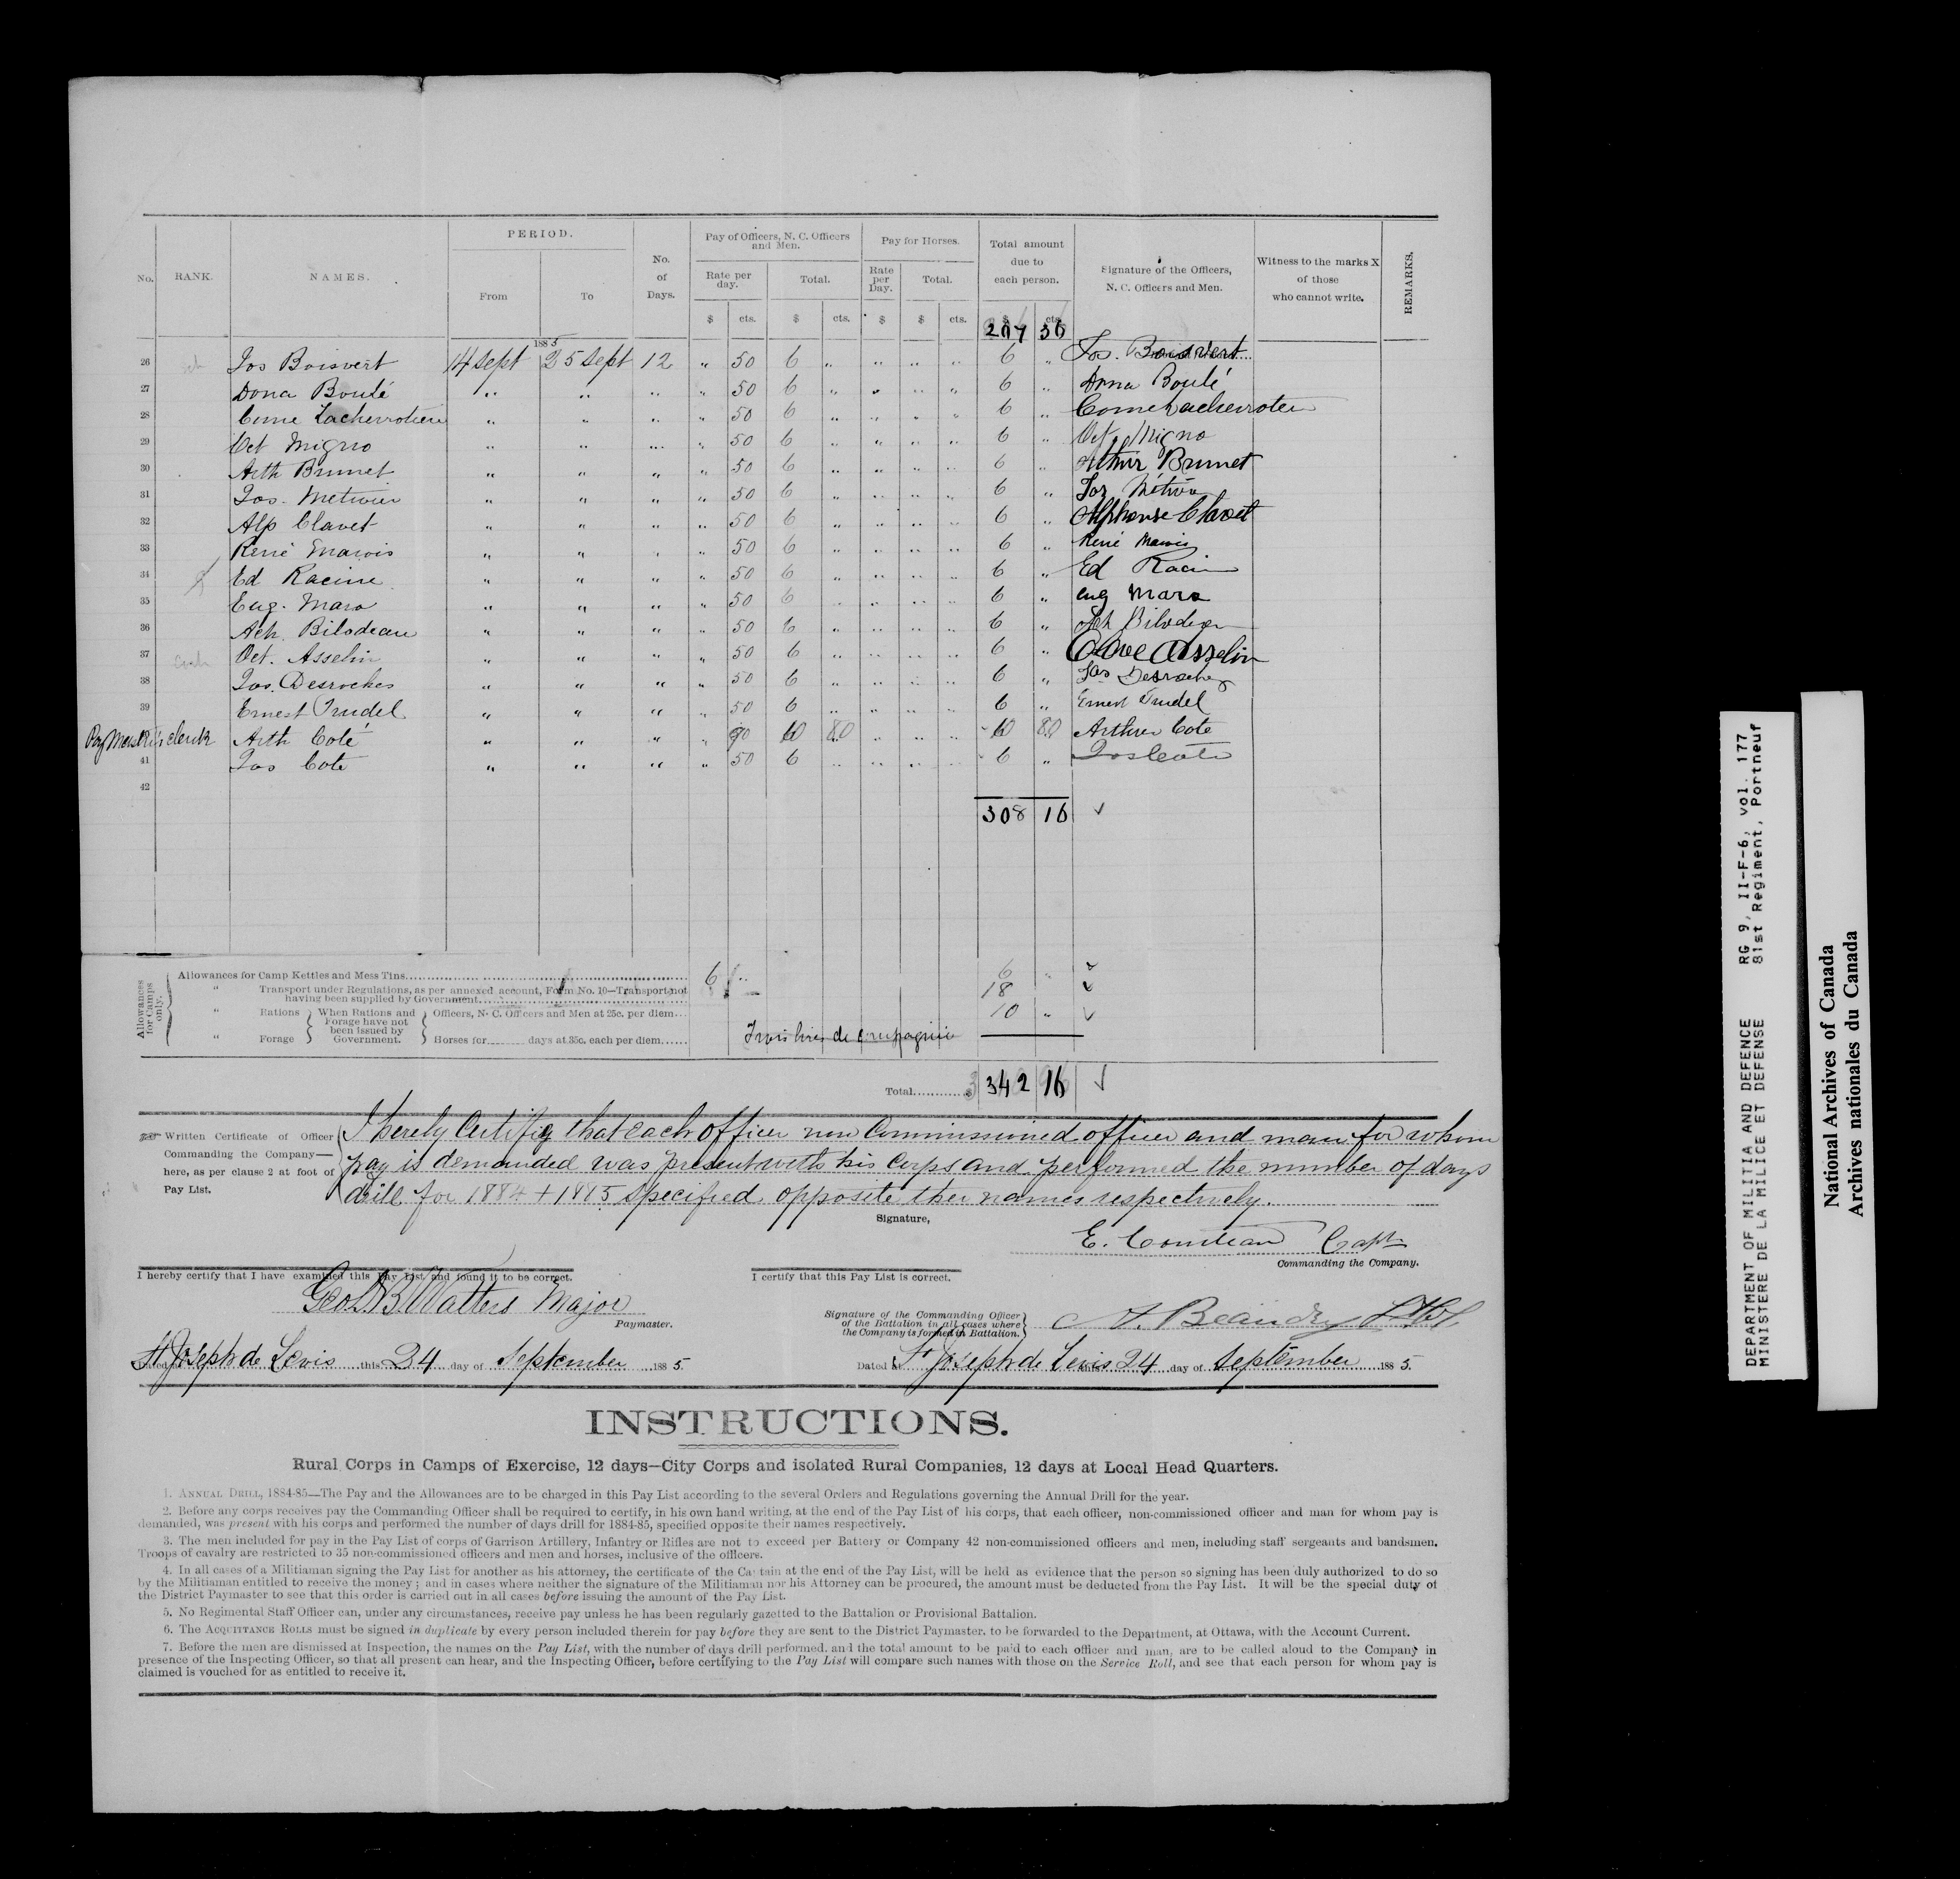 No. RANK. NAMES. PERIOD. From To No. of Days. Pay of Officers, N. C. Officers and Men. Rate per day. Total. Pay for Horses. Rate per Day. Total. Total amount due to each person. Signature of the Officers, N. C. Officers and Men. Witness to the marks X of those who cannot write. REMARKS.
$ cts. $ cts. $ $ cts. $ cts.
207 36
1885
26 Jos Boisvert 14 Sept 25 Sept 12 " 50 6 " " " " 6 " Jos. Boisvert
27 Dona Boulé " " " " 50 6 " " " " 6 " Dona Boulé
28 " " " " 50 6 " " " " 6 "
29 Oct Migno " " " " 50 6 " " " " 6 " Oct Migno
30 Arth Brunet " " " " 50 6 " " " " 6 " Arthur Brunet
31 Jos. Metivier " " " " 50 6 " " " " 6 " Jos
32 Alp Clavet " " " " 50 6 " " " " 6 " Alphonse Clavet
33 René Marois " " " " 50 6 " " " " 6 " René Marois
34 Ed Racine " " " " 50 6 " " " " 6 " Ed
35 Eug. Mara " " " " 50 6 " " " " 6 " eug Mara
36 Ach. Bilodeau " " " " 50 6 " " " " 6 " Ach Bilodeau
37 Oct. Asselin " " " " 50 6 " " " " 6 " Asselin
38 Jos. Desroches " " " " 50 6 " " " " 6 " Jos Desroches
39 Ernest Trudel " " " " 50 6 " " " " 6 " Ernest Trudel
clerk Arth Coté " " " " 90 10 80 " " " 10 80 Arthur Cote
41 Jos Coté " " " " 50 6 " " " " 6 " Jos Coté
42
308 16 ✓
Allowances for Camps only.
Allowances for Camp Kettles and Mess Tins 6 " 6 " ✓
" Transport under Regulations, as per annexed account, Form No. 10—Transport not having been supplied by Government 18 ✓
" Rations } When Rations and Forage have not been issued by Government. { Officers, N. C. Officers and Men at 25c. per diem 10 " ✓
" Forage Horses for days at 35c. each per diem
Trois livres de compagnie
Total $ 342 16 ✓
Written Certificate of Officer Commanding the Company—here, as per clause 2 at foot of Pay List.
I hereby Certify that each officer non Commissioned officer and man for whom
pay is demanded was present with his corps and performed the number of days
drill for 1884 + 1885 specified opposite their names respectively.
Signature,
E. Capt
Commanding the Company.
I hereby certify that I have examined this Pay List and found it to be correct.
Watters Major
Paymaster.
I certify that this Pay List is correct.
Signature of the Commanding Officer of the Battalion in all cases where the Company is formed in Battalion.
A. Beaudry
St Joseph de Levis this 24 day of September 1885
Dated at St Joseph de Levis this 24 day of September 1885.
INSTRUCTIONS.
Rural Corps in Camps of Exercise, 12 days—City Corps and isolated Rural Companies, 12 days at Local Head Quarters.
1. ANNUAL DRILL, 1884-85—The Pay and the Allowances are to be charged in this Pay List according to the several Orders and Regulations governing the Annual Drill for the year.
2. Before any corps receives pay the Commanding Officer shall be required to certify, in his own hand writing, at the end of the Pay List of his corps, that each officer, non-commissioned officer and man for whom pay is
demanded, was present with his corps and performed the number of days drill for 1884-85, specified opposite their names respectively.
3. The men included for pay in the Pay List of corps of Garrison Artillery, Infantry or Rifles are not to exceed per Battery or Company 42 non-commissioned officers and men, including staff sergeants and bandsmen.
Troops of cavalry are restricted to 35 non-commissioned officers and men and horses, inclusive of the officers.
4. In all cases of a Militiaman signing the Pay List for another as his attorney, the certificate of the Captain at the end of the Pay List, will be held as evidence that the person so signing has been duly authorized to do so
by the Militiaman entitled to receive the money; and in cases where neither the signature of the Militiaman nor his Attorney can be procured, the amount must be deducted from the Pay List. It will be the special duty of
the District Paymaster to see that this order is carried out in all cases before issuing the amount of the Pay List.
5. No Regimental Staff Officer can, under any circumstances, receive pay unless he has been regularly gazetted to the Battalion or Provisional Battalion.
6. The ACQUITTANCE ROLLS must be signed in duplicate by every person included therein for pay before they are sent to the District Paymaster, to be forwarded to the Department, at Ottawa, with the Account Current.
7. Before the men are dismissed at Inspection, the names on the Pay List, with the number of days drill performed, and the total amount to be paid to each officer and man, are to be called aloud to the Company in
presence of the Inspecting Officer, so that all present can hear, and the Inspecting Officer, before certifying to the Pay List will compare such names with those on the Service Roll, and see that each person for whom pay is
claimed is vouched for as entitled to receive it.
DEPARTMENT OF MILITIA AND DEFENCE RG 9, II-F-6, vol. 177
MINISTERE DE LA MILICE ET DEFENSE 81st Regiment, Portneuf
National Archives of Canada
Archives nationales du Canada